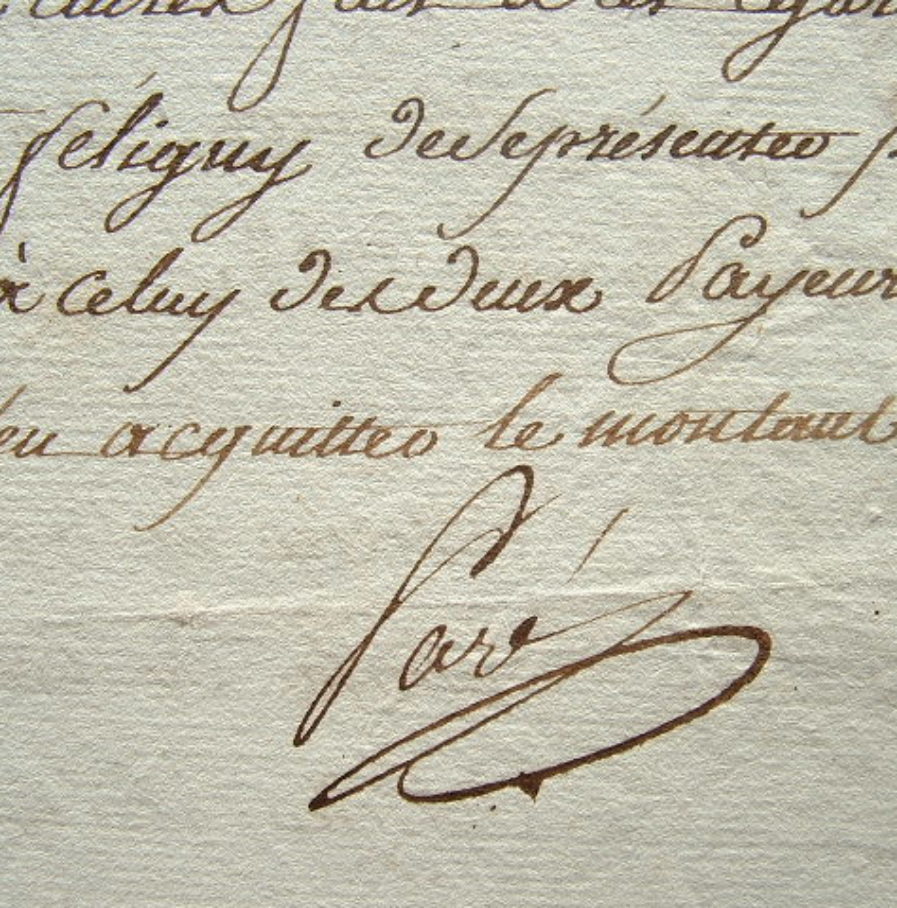 Séligny de se présenter
à celuy des deux Payeur
acquitter le montant
Paré